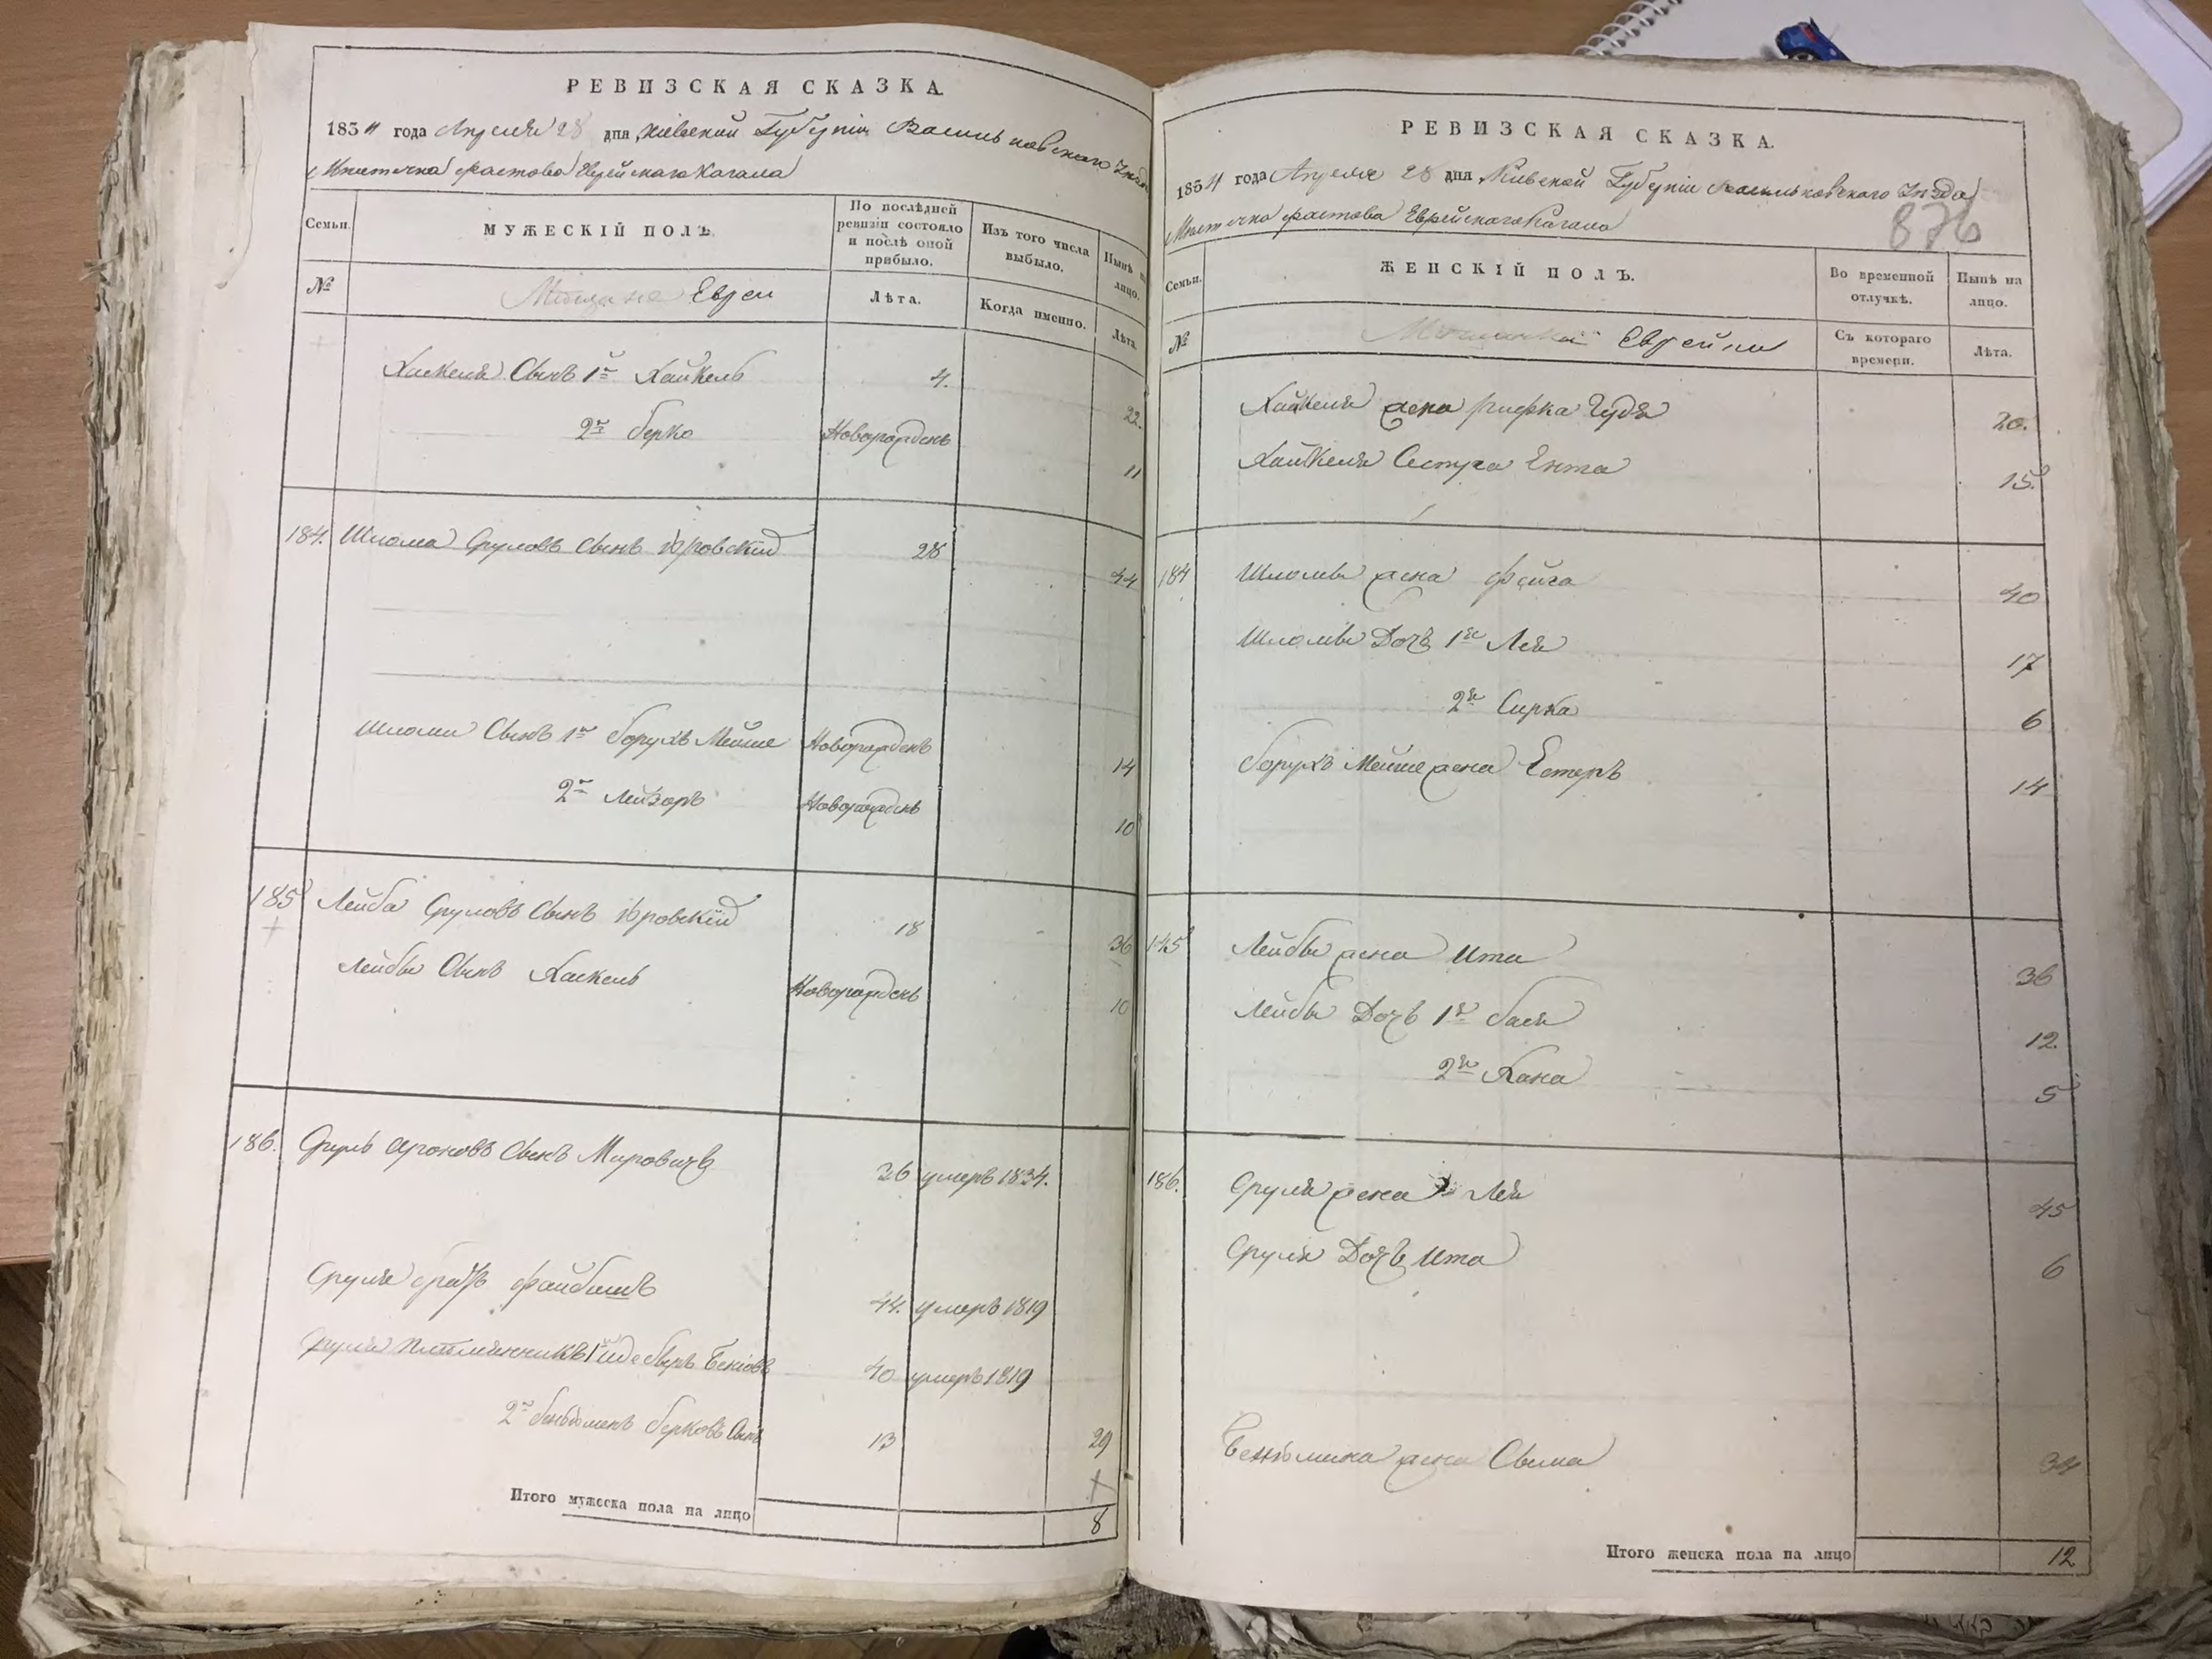 РЕВИЗСКАЯ СКАЗКА.
1834 года Апреля 28 дня, Кіевской Губерніи Васильковскаго Уезда
Местечка Фастова Еврейскаго Кагала
Семьи.
МУЖЕСКІЙ ПОЛЪ.
По послѣдней ревизіи состояло и послѣ оной прибыло.
Изъ того числа выбыло.
Нынѣ на лицо.
№
Мещане Евреи
Лѣта.
Когда именно.
Лѣта.
Хаскеля Сынъ 1й Хайкель 4. 22.
2й Берко Новорожденъ 11
184. Шлома Сруловъ Сынъ 28 44
Шломы Сынъ 1й Борухъ Мейше Новорожденъ 14
2й Лейзоръ Новорожденъ 10
185 Лейба Сруловъ Сынъ 18 36
Лейбы Сынъ Хаскель Новорожденъ 10
186. Сруль Ароновъ Сынъ Мировичъ 36 умеръ 1834.
Сруля братъ Файбишъ 44. умеръ 1819
Сруля племянникъ 1й 40 умеръ 1819
2й Беньюменъ Берковъ Сынъ 13 29
Итого мужеска пола на лицо 8
РЕВИЗСКАЯ СКАЗКА.
1834 года Апреля 28 дня, Кіевской Губерніи Васильковскаго Уезда
Местечка Фастова Еврейскаго Кагала
876
Семьи.
ЖЕНСКІЙ ПОЛЪ.
Во временной отлучкѣ.
Нынѣ на лицо.
№
Мещанки Еврейки
Съ котораго времени.
Лѣта.
Хайкеля жена Рифка Гудя 20.
Хайкеля Сестра Ента 15.
184 Шломы жена Фейга 40
Шломы Дочь 1я Лея 17
2я Сирка 6
Борухъ Мейше жена Естеръ 14
185 Лейбы жена Ита 36
Лейбы Дочь 1я Бася 12
2я Хана 5
186. Сруля жена Лея 45
Сруля Дочь Ита 6
Беньюмина жена Сыма 34
Итого женска пола на лицо 12